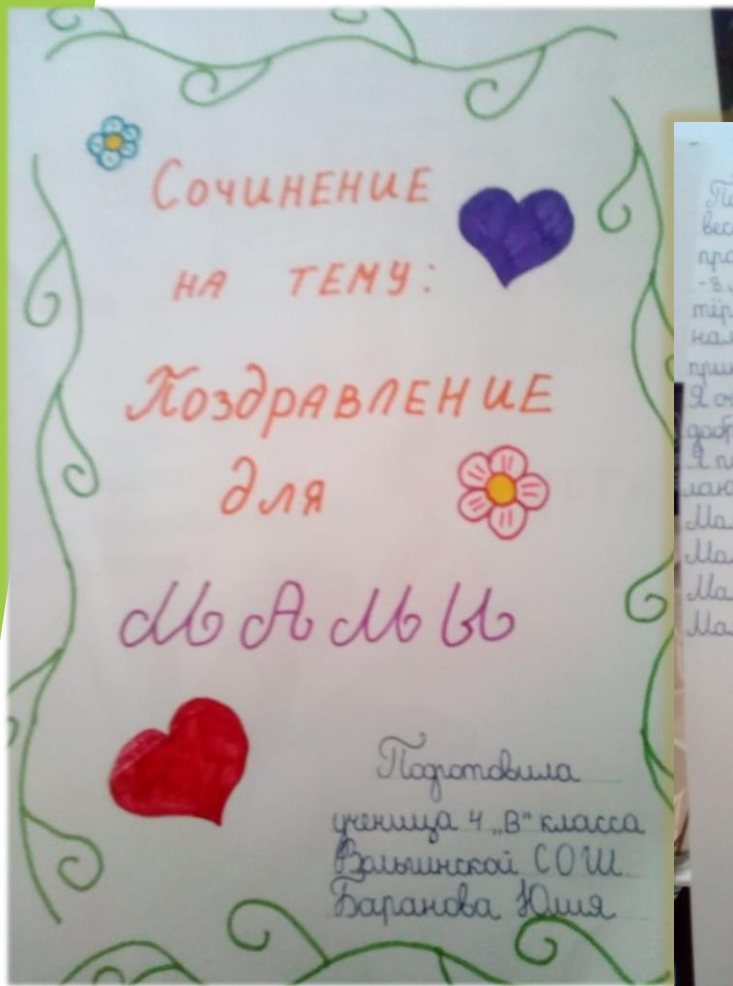 Сочинение
на тему:
Поздравление
для
МАМЫ
Подготовила
ученица 4 „В" класса
Вольгинской СОШ
Баранова Юлия